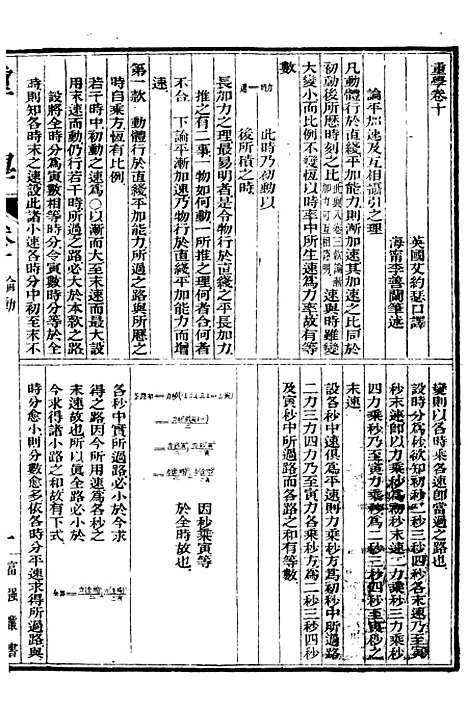 重學卷十
英國艾約瑟口譯
海甯李善蘭筆述
論平加速及互相攝引之理
凡動體行於直綫平加能力則漸加速其加速之比同於
初動後所歷時刻之比
大變小而比例不變恆以時率中所生速爲力率故有等
數
此時乃初動以
後所積之時
長加力之理最易明者是令物行於直綫之平長加力
推之有二事一物如何動一所推之理何者合何者
不合下論平漸加速乃物行於直綫平加能力而增
速
第一款 動體行於直綫平加能力所過之路與所歷之
時自乘方恆有比例
若干時中初動之速爲〇以漸而大至末速而最大設
用末速而動仍行若干時所過之路必大於本款之路
設將全時分爲寅數相等時分令寅數時分等於全
時則知各時末之速設此諸小速各時分中初至末不
變則以各時乘各速即當過之路也
設時分爲秒欲知初秒二秒三秒四秒各末速乃至寅
秒末速即以力乘秒爲初秒末速二力乘秒三力乘秒
四力乘秒乃至寅力乘秒爲二秒三秒四秒乃至寅秒之
末速
設各秒中速俱爲平速則力乘秒方爲初秒中所過路
二力三力四力乃至寅力各乘秒方爲二秒三秒四秒
及寅秒中所過路而各路之和有等數
因秒乘寅等
於全時故也
各秒中實所過路必小於今求
得之路因今所用速爲各秒之
末速故也所以眞全路必小於
今求得諸小路之和故有下式
時分愈小則分數愈多依各時分平速求得所過路與
重學
卷十 論動
一
富強叢書